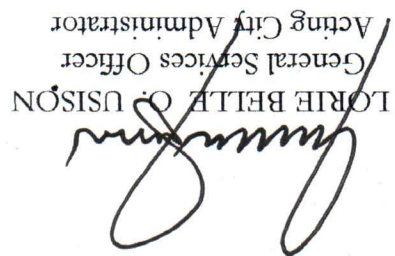 LORIE BELLE O. USISON
General Services Officer
Acting City Administrator